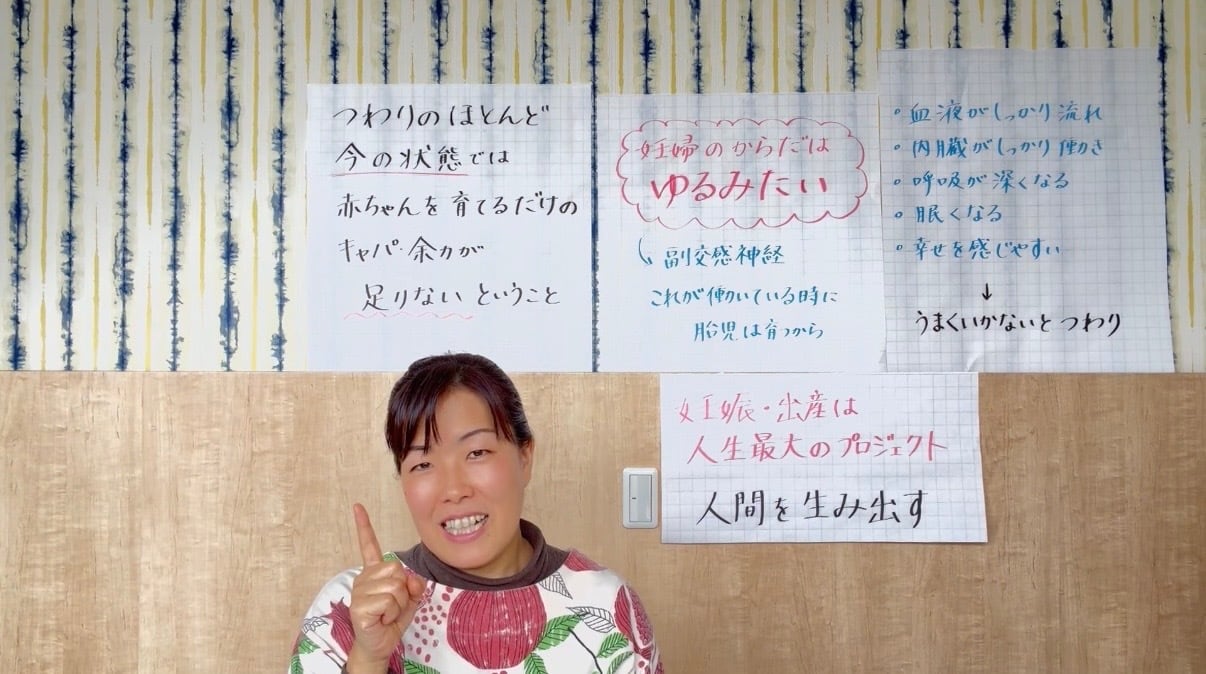 つわりのほとんど
今の状態では
赤ちゃんを育てるだけの
キャパ・余力が
足りないということ
妊婦のからだは
ゆるみたい
副交感神経
これが働いている時に
胎児は育つから
・血液がしっかり流れ
・内臓がしっかり働き
・呼吸が深くなる
・眠くなる
・幸せを感じやすい
↓
うまくいかないとつわり
妊娠・出産は
人生最大のプロジェクト
人間を生み出す